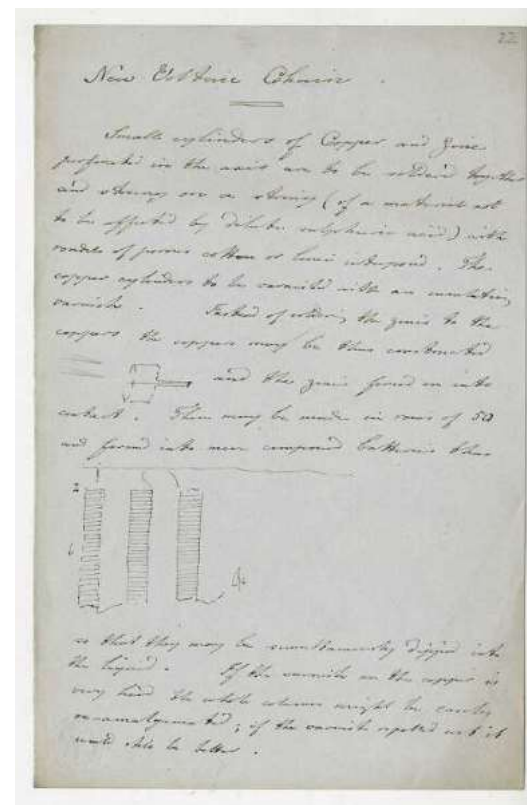 22
New Voltaic Column.
Small cylinders of Copper and Zinc
perforated in the axis are to be soldered together
and strung on a string (of a material not
to be affected by dilute sulphuric acid) with
of porous cotton or linen interposed. The
copper cylinders to be varnished with an insulating
varnish. Instead of soldering the zinc to the
coppers the coppers may be thus constructed
and the zinc forced on into
contact. These may be made in rows of 50
and formed into more compound batteries thus
Z
c
so that they may be simultaneously dipped into
the liquid. If the varnish on the copper is
very hard the whole column might be easily
reamalgamated; if the varnish repelled wet it
would also be better.